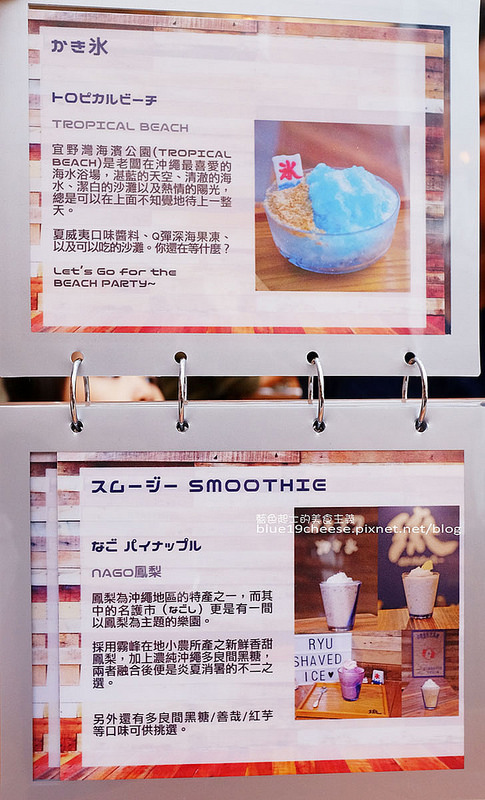 かき氷
トロピカルビーチ
TROPICAL BEACH
宜野灣海濱公園(TROPICAL
BEACH)是老闆在沖繩最喜愛的
海水浴場，湛藍的天空、清澈的海
水、潔白的沙灘以及熱情的陽光，
總是可以在上面不知覺地待上一整
天。
夏威夷口味醬料、Q彈深海果凍、
以及可以吃的沙灘。你還在等什麼？
Let's Go for the
BEACH PARTY~
氷
スムージー SMOOTHIE
藍色起士的美食主義
blue19cheese.pixnet.net/blog
なご パイナップル
NAGO鳳梨
鳳梨為沖繩地區的特產之一，而其
中的名護市（なごし）更是有一間
以鳳梨為主題的樂園。
採用霧峰在地小農所產之新鮮香甜
鳳梨，加上濃純沖繩多良間黑糖，
兩者融合後便是炎夏消暑的不二之
選。
另外還有多良間黑糖/善哉/紅芋
等口味可供挑選。
RYU
SHAVED
ICE♥